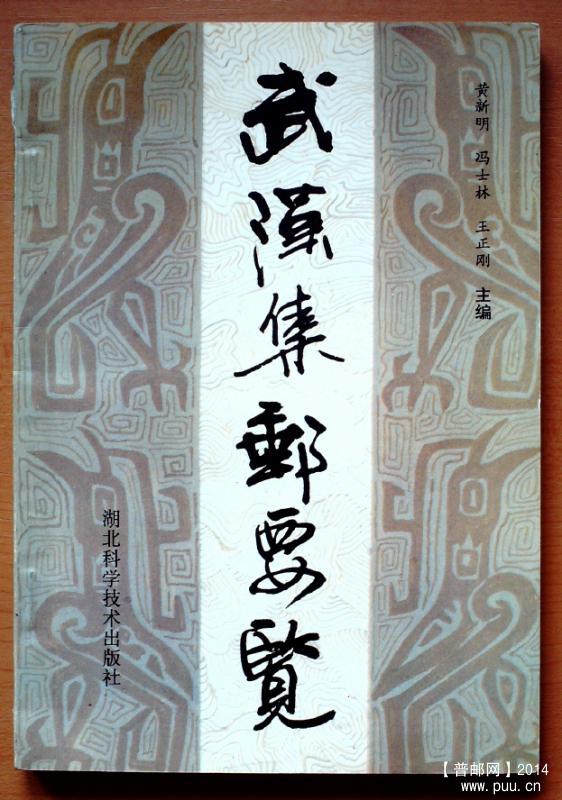 武漢集郵要覽
黄新明 冯士林 王正刚 主编
湖北科学技术出版社
【普邮网】2014
www.puu.cn